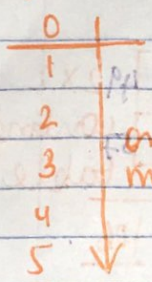 0
1
2
3
4
5